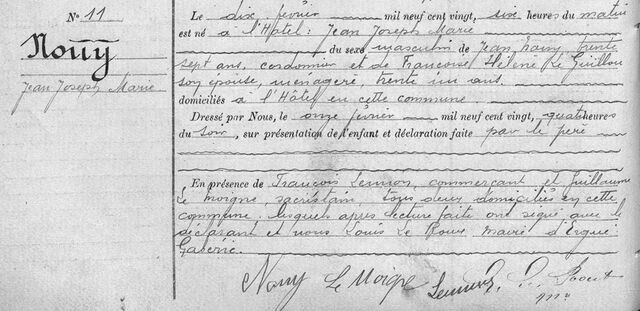 N° 11
Nouy
Jean Joseph Marie
Le dix février mil neuf cent vingt, six heures du matin
est né a l'Hôtel: Jean Joseph Marie
du sexe masculin de Jean Nouy, trente
sept ans, cordonnier et de Françoise Hélène Le Guillou
son épouse, ménagère, trente un ans.
domiciliés a l'Hôtel en cette commune
Dressé par Nous, le onze février mil neuf cent vingt, quatre heures
du soir, sur présentation de l'enfant et déclaration faite par le père
En présence de François Lennon, commerçant et Guillaume
Le Moigne, sacristain tous deux domiciliés en cette
commune. lesquels après lecture faite ont signé avec le
déclarant et nous Louis Le Roux, maire d'Ergué
Gabéric.
Nouy Le Moigne